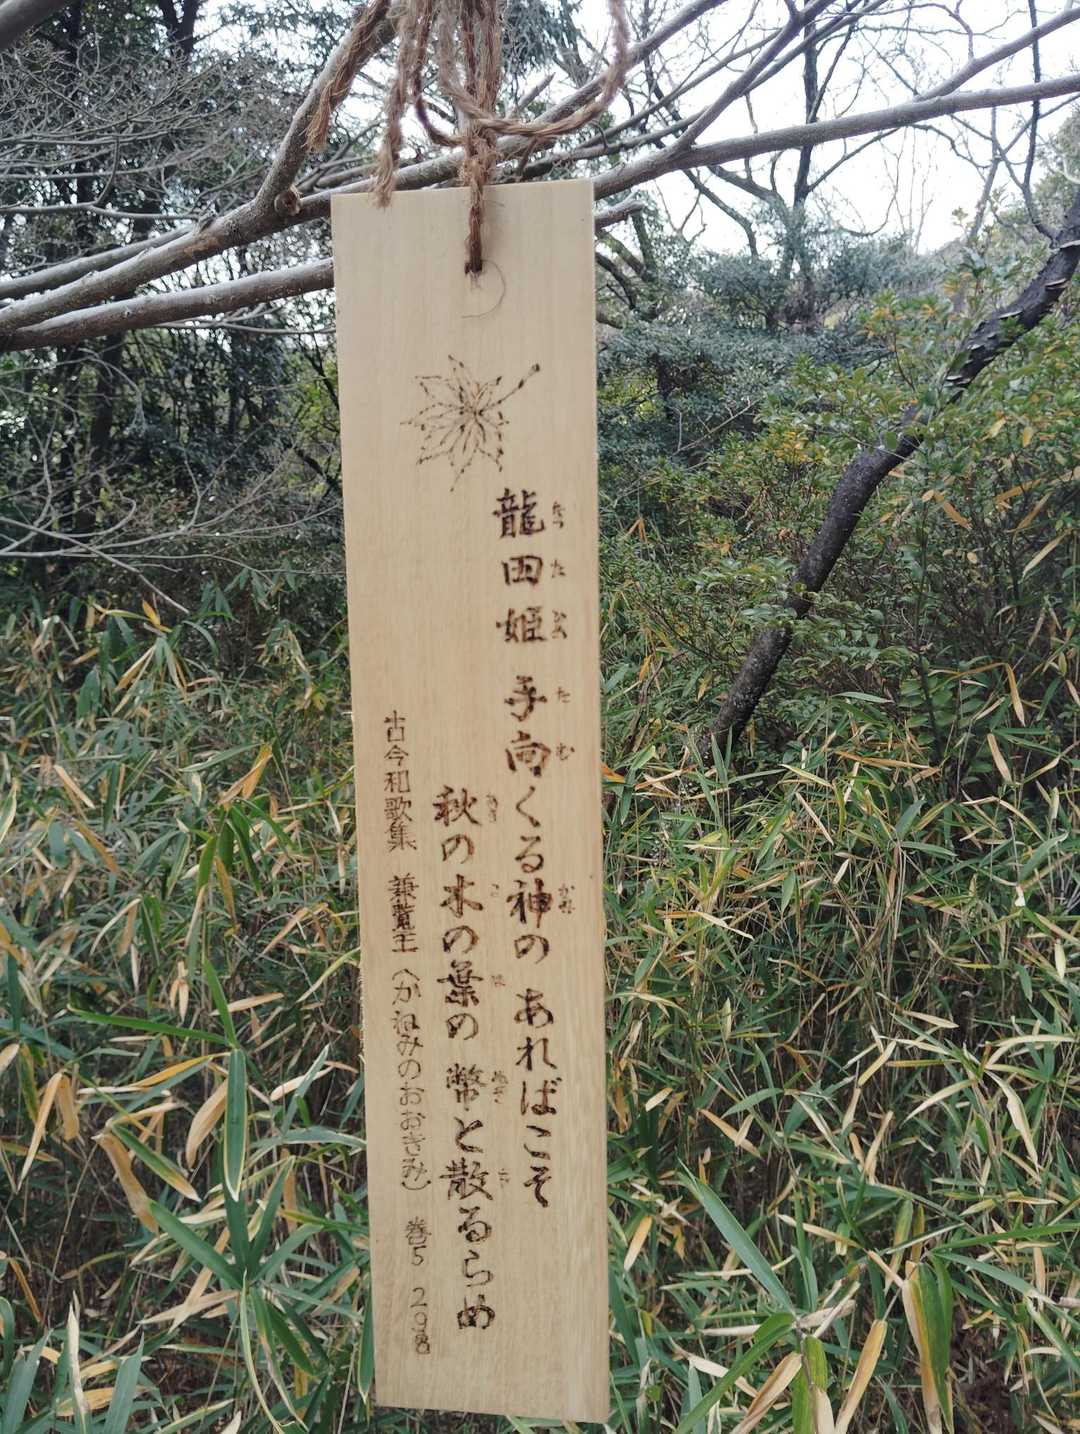 龍田姫 手向くる神の あればこそ
秋の木の葉の 幣と散るらめ
古今和歌集 兼覧王（かねみのおおきみ） 巻5 298